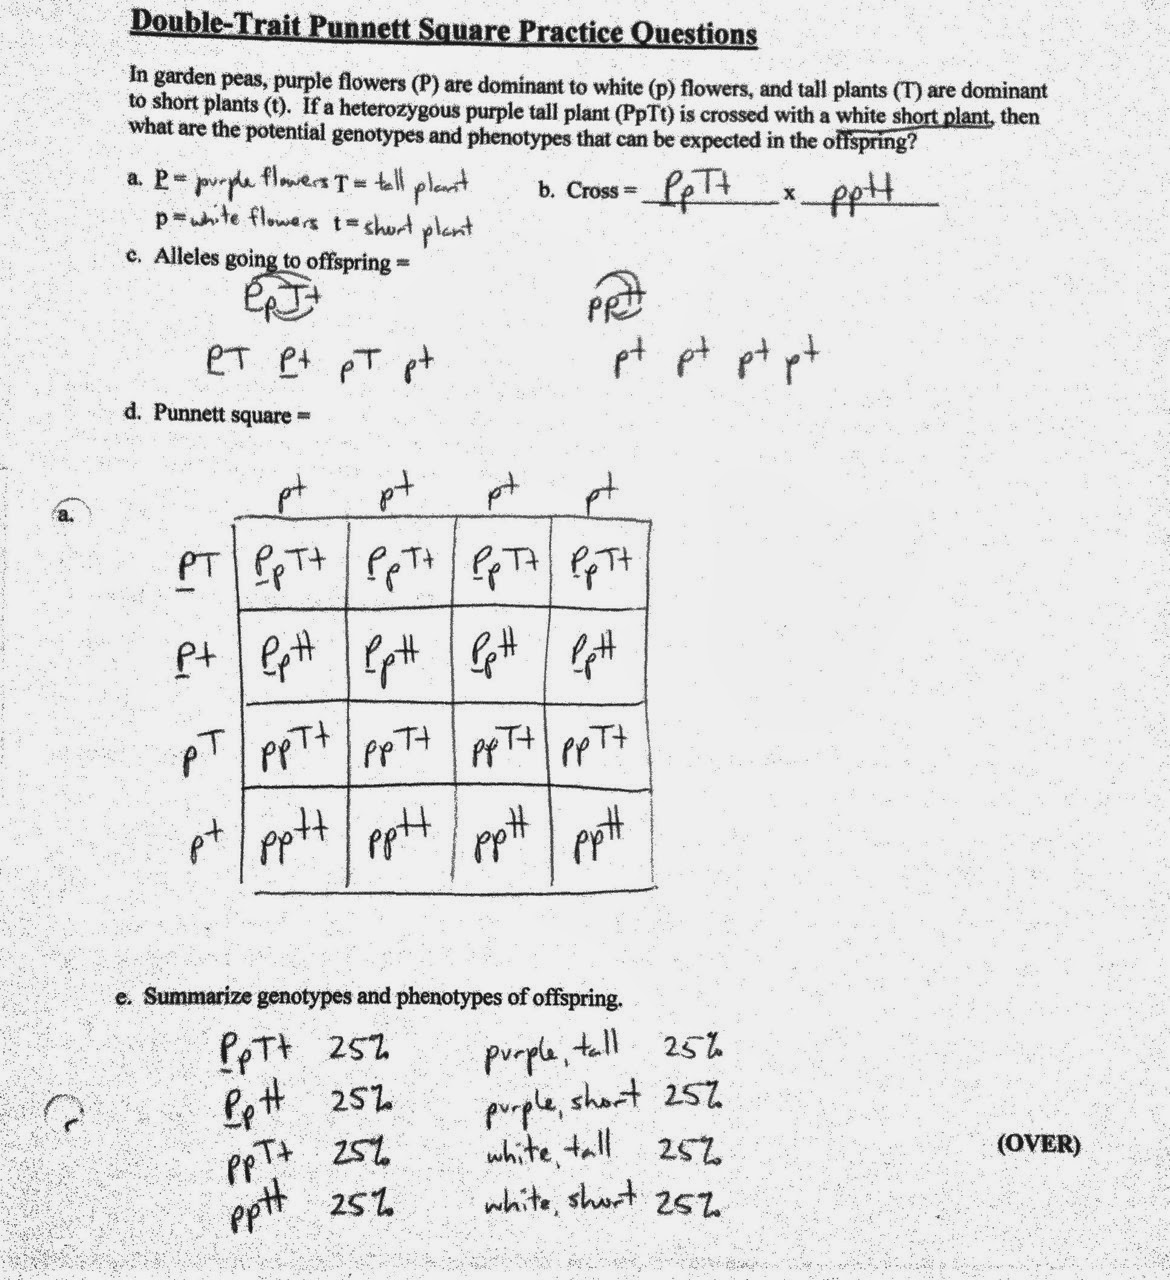 Double-Trait Punnett Square Practice Questions
In garden peas, purple flowers (P) are dominant to white (p) flowers, and tall plants (T) are dominant
to short plants (t). If a heterozygous purple tall plant (PpTt) is crossed with a white short plant, then
what are the potential genotypes and phenotypes that can be expected in the offspring?
a. P = purple flowers T = tall plant
p = white flowers t = short plant
b. Cross = PpTt x pptt
c. Alleles going to offspring =
PpTt pptt
PT Pt pT pt pt pt pt pt
d. Punnett square =
a.
pt pt pt pt
PT PpTt PpTt PpTt PpTt
Pt Pptt Pptt Pptt Pptt
pT ppTt ppTt ppTt ppTt
pt pptt pptt pptt pptt
e. Summarize genotypes and phenotypes of offspring.
PpTt 25% purple, tall 25%
Pptt 25% purple, short 25%
ppTt 25% white, tall 25%
pptt 25% white, short 25%
(OVER)